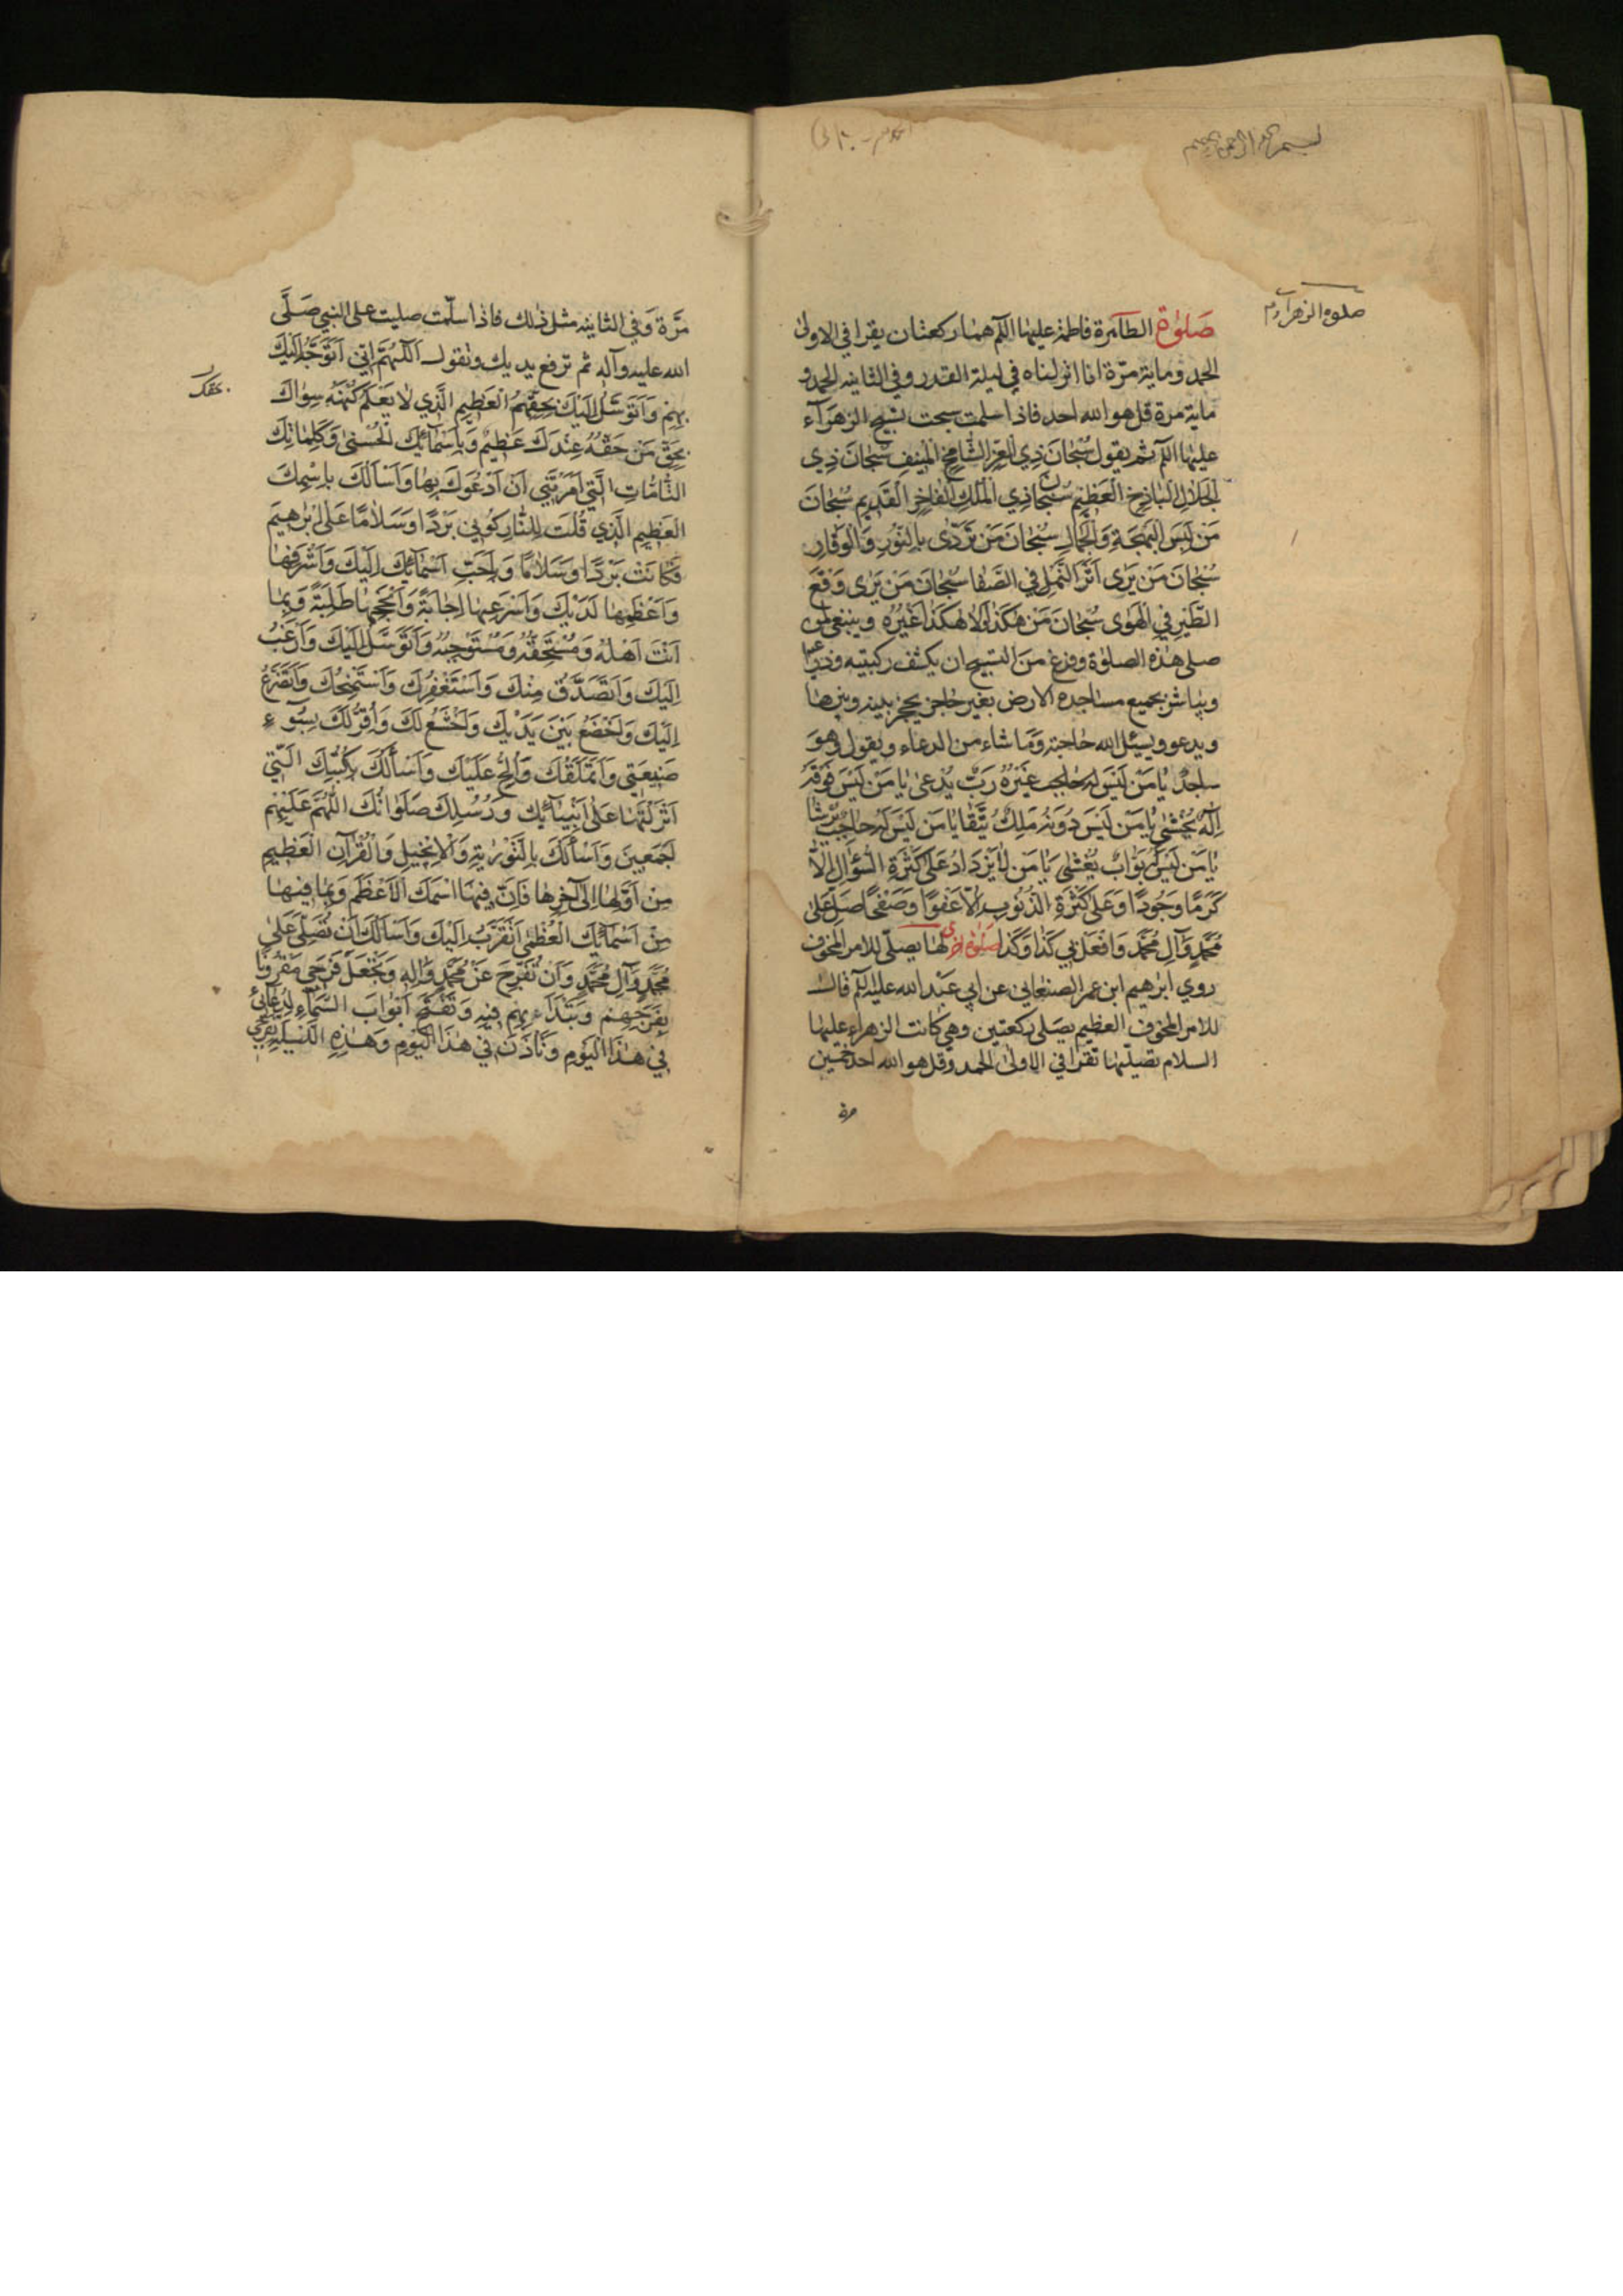 بسم الله الرحمن الرحيم
صلوة الزهراء
صَلوٰة الطاهرة فاطمة عليها السلم هما ركعتان يقرا في الاولى
الحمد وماية مرّة انا انزلناه في ليلة القدر وفي الثانيه الحمد و
ماية مرة قل هو الله احد فاذا سلمت سبحت تسبيح الزهرآء
عليها السلم ثم يقول سُبْحانَ ذِي الْعِزِّ الشّامِخِ الْمُنيفِ سُبْحانَ ذِي
الْجَلالِ الْباذِخِ الْعَظيمِ سُبْحانَ ذِي الْمُلْكِ الْفاخِرِ الْقَديمِ سُبْحانَ
مَنْ لَبِسَ الْبَهْجَةَ وَالْجَمالَ سُبْحانَ مَنْ تَرَدّى بِالنُّورِ وَالْوَقارِ
سُبْحانَ مَنْ يَرى اَثَرَ النَّمْلِ فِي الصَّفا سُبْحانَ مَنْ يَرى وَقْعَ
الطَّيْرِ فِي الْهَوٰى سُبْحانَ مَنْ هُوَ هكَذا وَلا هكَذا غَيْرُهُ وينبغي لمن
صلى هذه الصلوة وفرغ من التسبيح ان يكشف ركبتيه وذراعيه
ويباشر بجميع مساجده الارض بغير حاجز يحجز بينه وبينها
ويدعو ويسئل الله حاجته وما شاء من الدعاء ويقول وهو
ساجدٌ يا مَنْ لَيْسَ غَيْرَهُ رَبٌّ يُدْعى يا مَنْ لَيْسَ فَوْقَهُ
اِلهٌ يُخْشى يا مَنْ لَيْسَ دُونَهُ مَلِكٌ يُتَّقا يا مَنْ لَيْسَ لَهُ حاجِبٌ يُرْشا
يا مَنْ لَيْسَ لَهُ بَوّابٌ يُغْشى يا مَنْ لا يَزْدادُ عَلى كَثْرَةِ السُّؤالِ اِلاّ
كَرَمًا وَجُودًا وَعَلى كَثْرَةِ الذُّنُوبِ اِلاّ عَفْوًا وَصَفْحًا صَلِّ عَلى
مُحَمَّدٍ وَآلِ مُحَمَّدٍ وَافْعَلْ بي كَذا وَكَذا صلوة اخرى لها يصلّى للامر المخوف
روي ابرهيم ابن عمر الصنعاني عن ابي عبد الله عليه السلم قال
للامر المخوف العظيم يصلى ركعتين وهي كانت الزهراء عليها
السلام تصليها تقرا في الاولى الحمد وقل هو الله احد خمسين
مرة
مرّة وفي الثانيه مثل ذلك فاذا سلّمت صليت على النبي صَلَّى
الله عليه وآله ثم ترفع يديك وتقول اَللّهُمَّ اِنّي اَتَوَجَّهُ اِلَيْكَ
بِهِمْ وَاَتَوَسَّلُ اِلَيْكَ بِحَقِّهِمُ الْعَظيمِ الَّذي لا يَعْلَمُ كُنْهَهُ سِواكَ
بِحَقِّ مَنْ حَقُّهُ عِنْدَكَ عَظيمٌ وَبِاَسْمائِكَ الْحُسْنى وَكَلِماتِكَ
التّامّاتِ الَّتي اَمَرْتَني اَنْ اَدْعُوَكَ بِها وَاَسْاَلُكَ بِاسْمِكَ
العَظيمِ الَّذي قُلْتَ لِلنّارِ كُوني بَرْدًا وَسَلامًا عَلى اِبْرهيمَ
فَكانَتْ بَرْدًا وَسَلامًا وَبِاَحَبِّ اَسْمائِكَ اِلَيْكَ وَاَشْرَفِها
وَاَعْظَمِها لَدَيْكَ وَاَسْرَعِها اِجابَةً وَاَنْجَحِها طَلِبَةً وَبِما
اَنْتَ اَهْلُهُ وَمُسْتَحِقُّهُ وَمُسْتَوْجِبُهُ وَاَتَوَسَّلُ اِلَيْكَ وَاَرْغَبُ
اِلَيْكَ وَاَتَصَدَّقُ مِنْكَ وَاَسْتَغْفِرُكَ وَاَسْتَمْنِحُكَ وَاَتَضَرَّعُ
اِلَيْكَ وَاَخْضَعُ بَيْنَ يَدَيْكَ وَاَخْشَعُ لَكَ وَاُقِرُّ لَكَ بِسُوءِ
صَنيعَتي وَاَتَمَلَّقُكَ وَاُلِحُّ عَلَيْكَ وَاَسْأَلُكَ بِكُتُبِكَ الَّتي
اَنْزَلْتَها عَلى اَنْبِيائِكَ وَرُسُلِكَ صَلَواتُكَ اللّهُمَّ عَلَيْهِمْ
اَجْمَعينَ وَاَسْأَلُكَ بِالتَّوْرٰيةِ وَالْاِنْجيلِ وَالْقُرْآنِ الْعَظيمِ
مِنْ اَوَّلِها اِلى آخِرِها فَاِنَّ فيهَا اسْمَكَ الْاَعْظَمَ وَبِما فيها
مِنْ اَسْمائِكَ الْعُظْمى اَتَقَرَّبُ اِلَيْكَ وَاَسْاَلُكَ اَنْ تُصَلِّيَ عَلى
مُحَمَّدٍ وَآلِ مُحَمَّدٍ وَاَنْ تُفَرِّجَ عَنْ مُحَمَّدٍ وَآلِهِ وَتَجْعَلَ فَرَجي مَقْرُونًا
بِفَرَجِهِمْ وَتَبْدَاَ بِهِمْ فيهِ وَتَفْتَحَ اَبْوابَ السَّماءِ لِدُعائي
في هذَا الْيَوْمِ وَتَأْذَنَ في هذَا الْيَوْمِ وَهذِهِ اللَّيْلَةِ بِفَرَجي